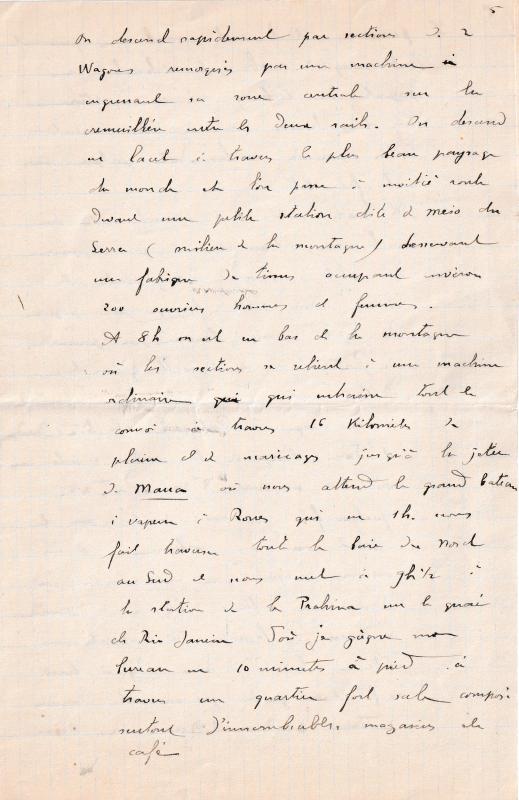 5
On descend rapidement par sections de 2
Wagons remorqués par une machine
engrenant sa roue centrale sur la
cremaillère entre les deux rails. On descend
en lacet à travers le plus beau paysage
du monde et l'on passe à moitié route
devant une petite station dite de meio da
Serra (milieu de la montagne) desservant
une fabrique de tissus occupant environ
200 ouvriers hommes et femmes.
A 8h on est en bas de la montagne
où les sections se relient à une machine
ordinaire qui qui entraine tout le
convoi à travers 16 Kilomètres de
plaine et de marécages jusqu'à la jetée
de Maua où nous attend le grand bateau
à vapeur à Roues qui en 1h. nous
fait traverser toute la baie du Nord
au Sud et nous met à 9h1/2 à
la station de la Prahina sur le quai
de Rio Janeiro D'où je gagne mon
bureau en 10 minutes à pied à
travers un quartier fort sale composé
surtout d'innombrables magasins de
café